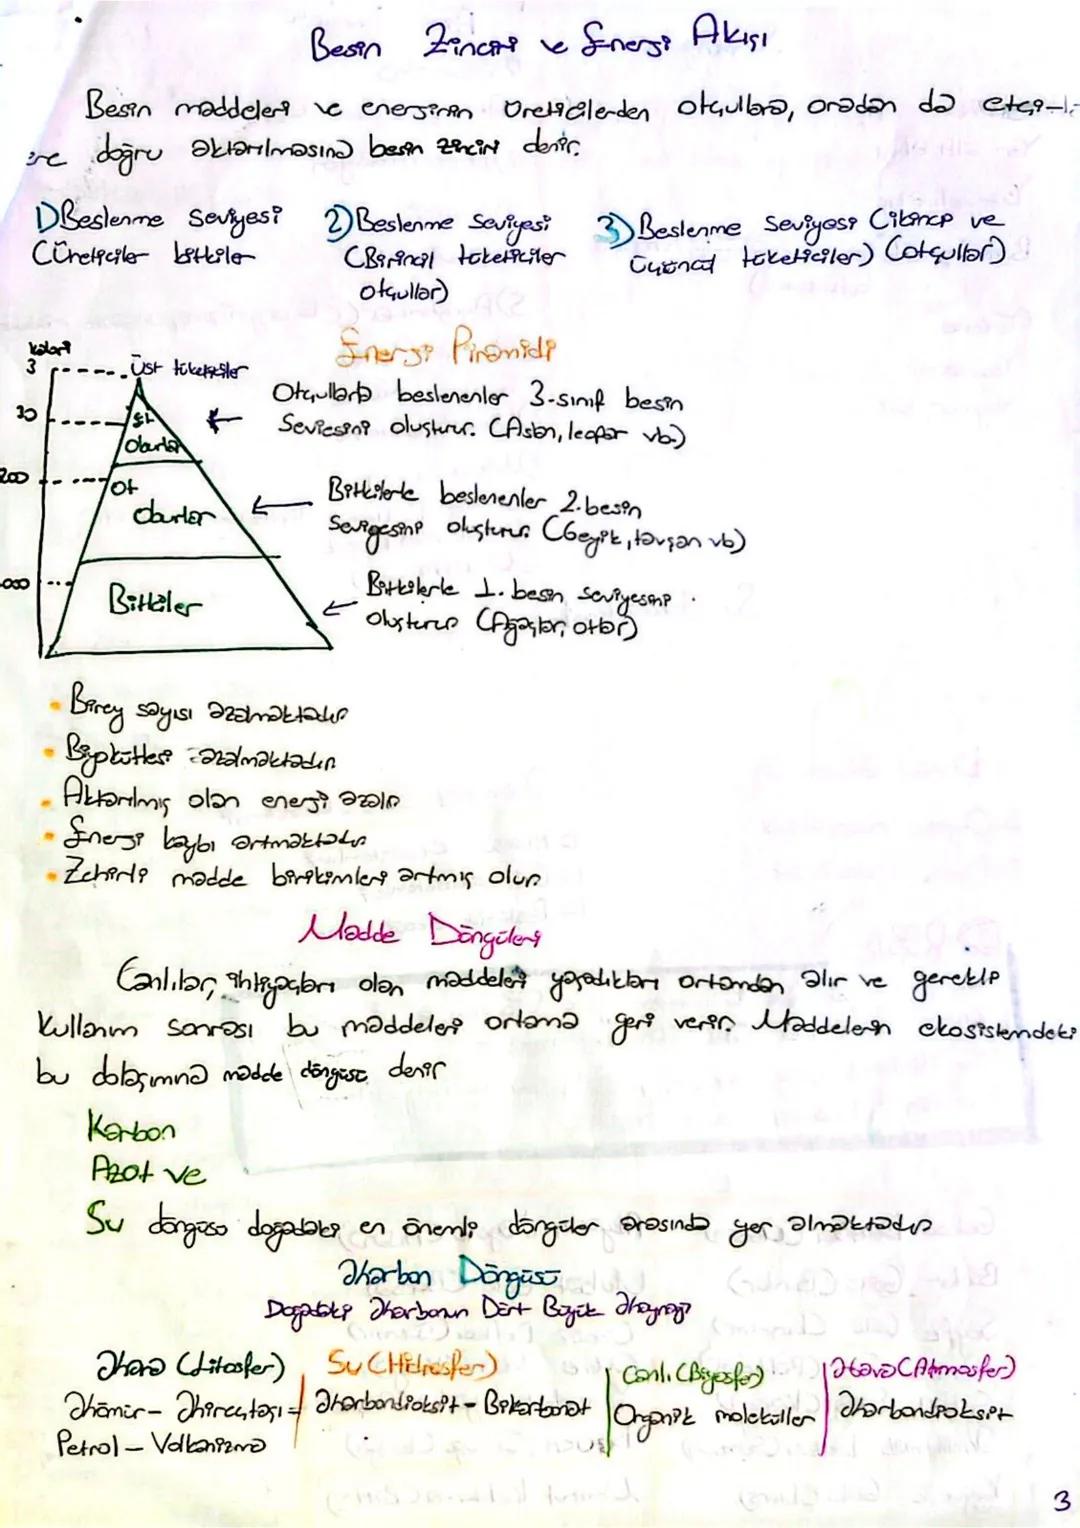 Besin Zinciri ve Enerji Akışı
Besin maddeleri ve enerjinin üreticilerden otçullara, oradan da etçil-
ere doğru aktarılmasına besin zinciri denir.
1) Beslenme Seviyesi
(Üreticiler bitkiler
2) Beslenme Seviyesi
(Birincil tüketiciler
otçullar)
3) Beslenme Seviyesi (ikinci ve
üçüncül tüketiciler) (otçullar)
Enerji Piramidi
kalori
3 Üst tüketiciler
30
Et
Oburlar
Otçullarla beslenenler 3-sınıf besin
Seviesini oluşturur. (Aslan, leopar vb.)
200
Ot
oburlar
Bitkilerle beslenenler 2.besin
Seviyesini oluşturur. (Geyik, tavşan vb)
000
Bitkiler
Bitkilerle 1. besin seviyesini
oluşturur (Ağaçlar, otlar)
• Birey sayısı azalmaktadır
• Biyokütlesi azalmaktadır
• Aktarılmış olan enerji azalır
• Enerji kaybı artmaktadır
• Zehirli madde birikimleri artmış olur
Madde Döngüleri
Canlılar, ihtiyaçları olan maddeleri yaşadıkları ortamdan alır ve gerekli
kullanım sonrası bu maddeleri ortama geri verir. Maddelerin ekosistemdeki
bu dolaşımına madde döngüsü denir
Karbon
Azot ve
Su döngüsü doğadaki en önemli döngüler arasında yer almaktadır
Karbon Döngüsü
Doğadaki Karbonun Dört Büyük Kaynağı
Kara (Litosfer)
Kömür - Kireçtaşı -
Petrol - Volkanizma
Su (Hidrosfer)
Karbondioksit - Bikarbonat
Canlı (Biyosfer)
Organik moleküller
Hava (Atmosfer)
Karbondioksit
3